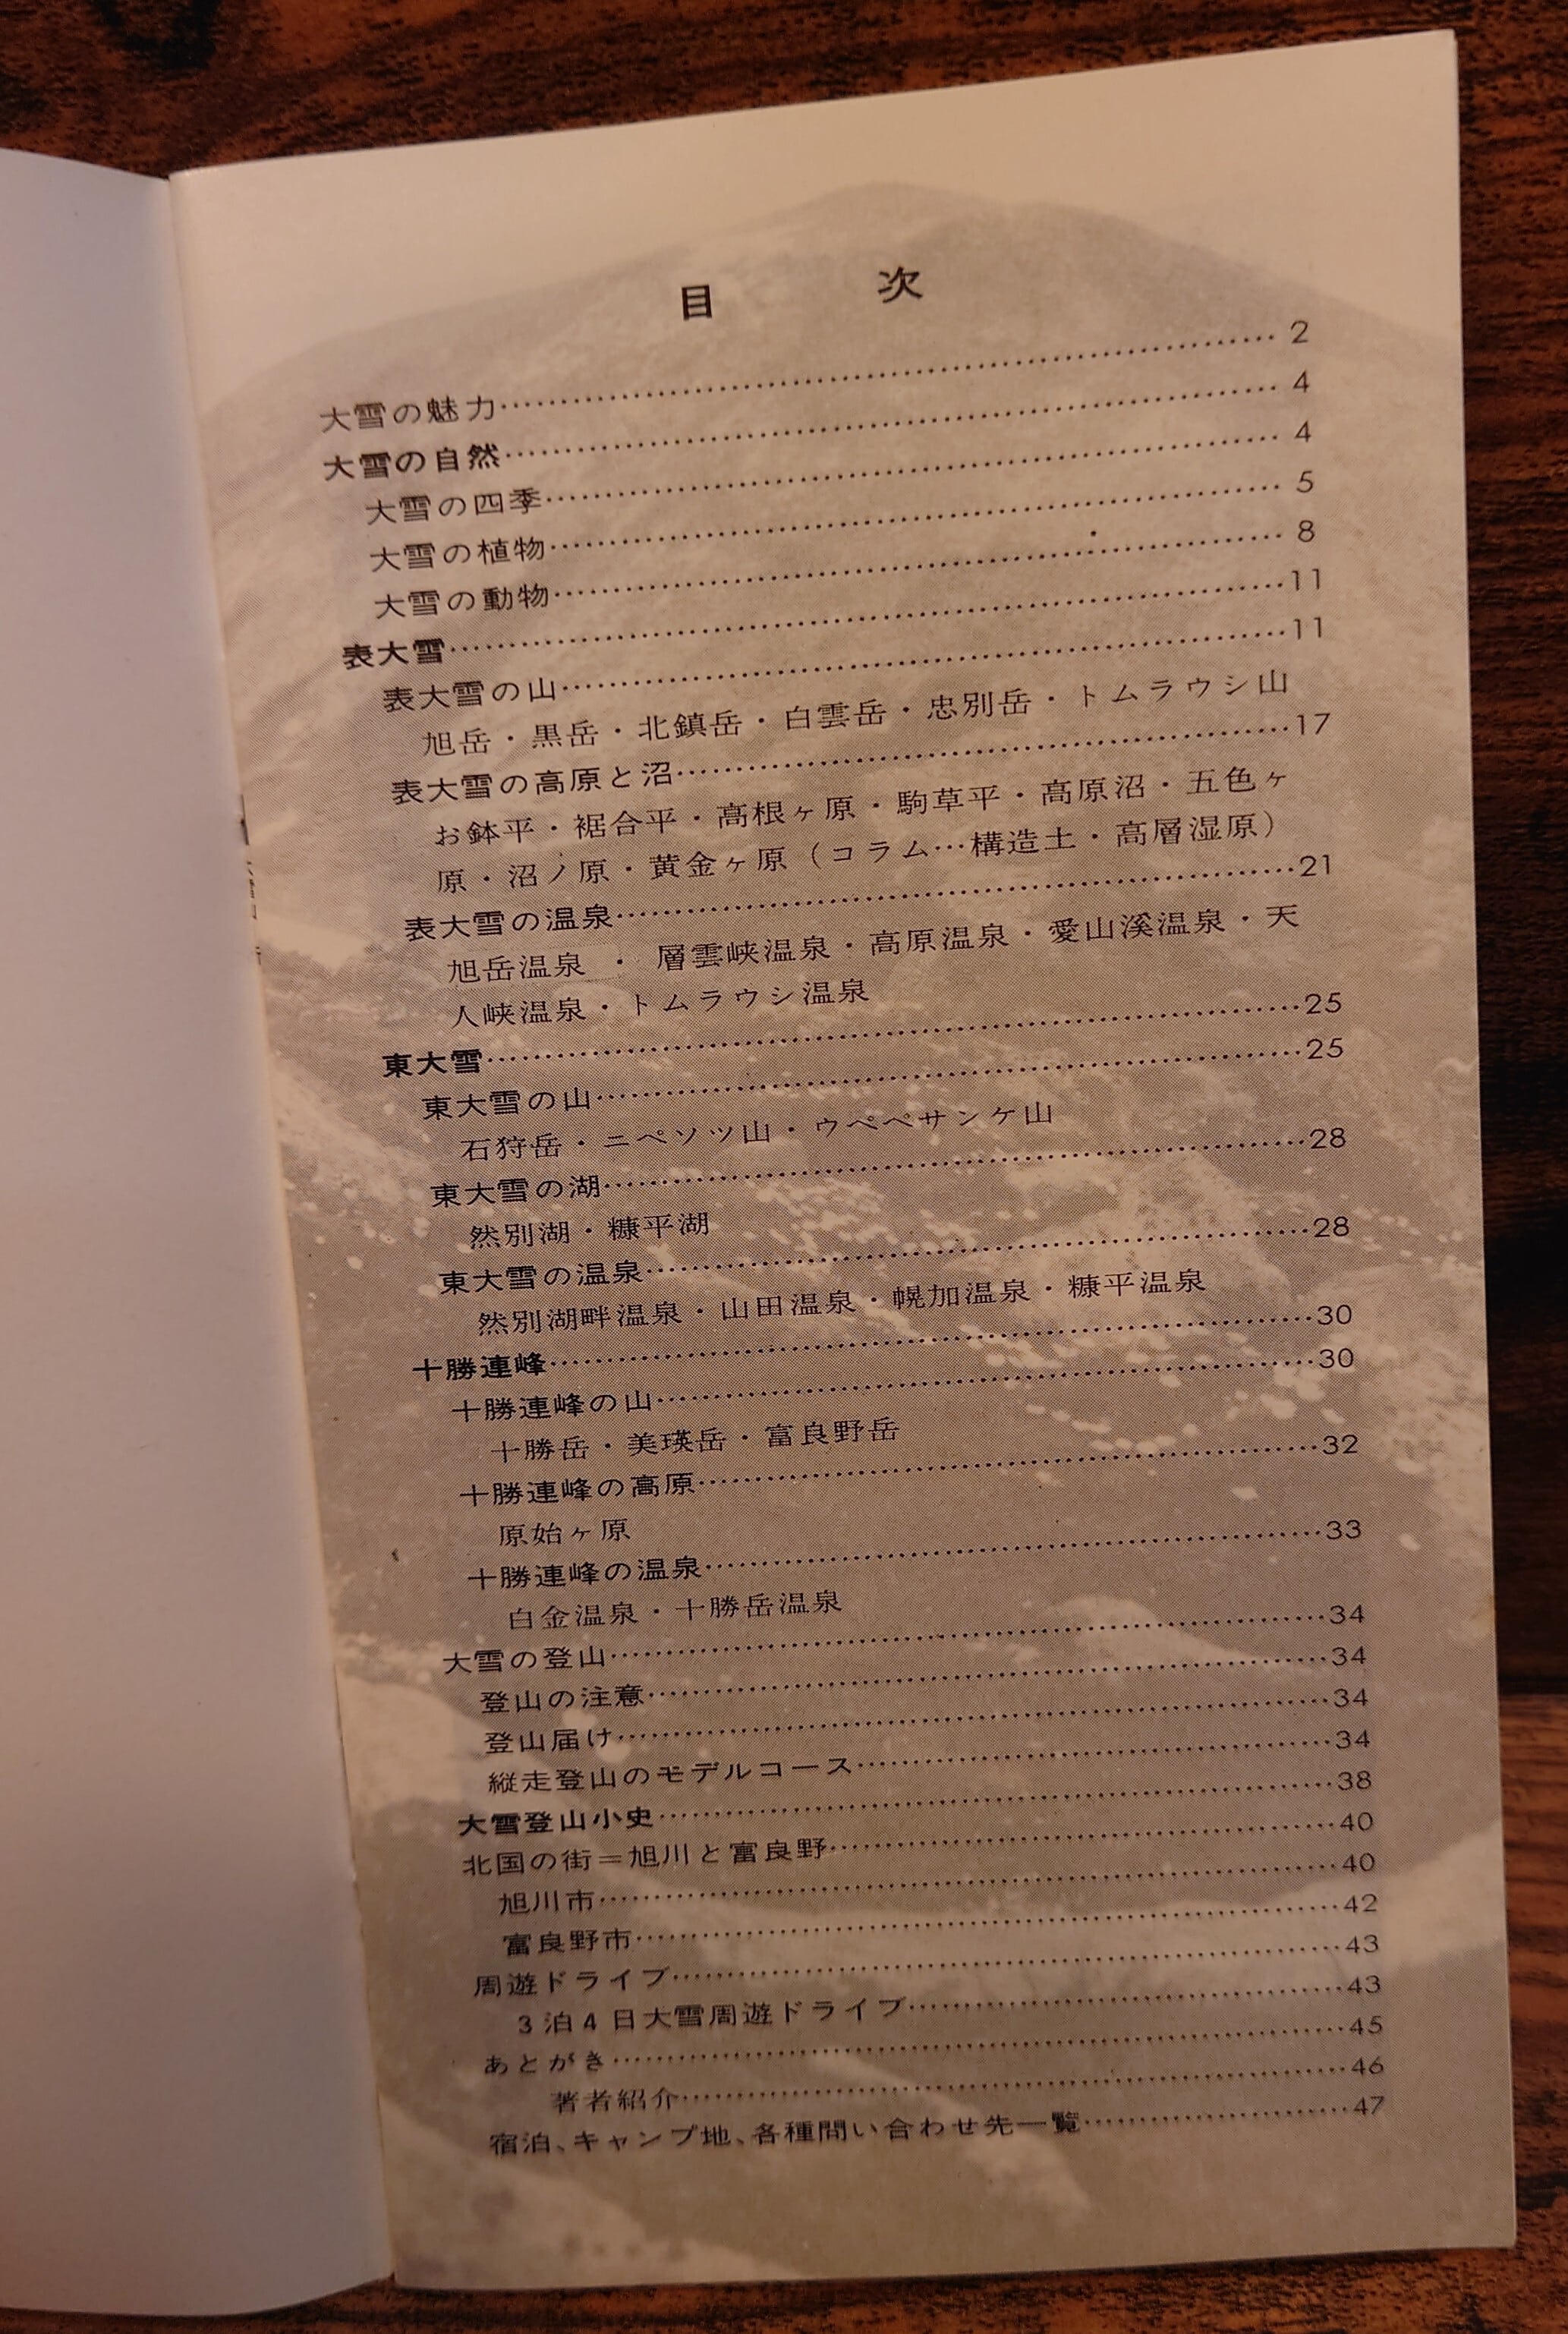 目 次
大雪の魅力…………2
大雪の自然…………4
大雪の四季…………4
大雪の植物…………5
大雪の動物…………8
表大雪…………11
表大雪の山…………11
旭岳・黒岳・北鎮岳・白雲岳・忠別岳・トムラウシ山
表大雪の高原と沼…………17
お鉢平・裾合平・高根ヶ原・駒草平・高原沼・五色ヶ
原・沼ノ原・黄金ヶ原（コラム…構造土・高層湿原）
表大雪の温泉…………21
旭岳温泉・層雲峡温泉・高原温泉・愛山溪温泉・天
人峡温泉・トムラウシ温泉
東大雪…………25
東大雪の山…………25
石狩岳・ニペソツ山・ウペペサンケ山
東大雪の湖…………28
然別湖・糠平湖
東大雪の温泉…………28
然別湖畔温泉・山田温泉・幌加温泉・糠平温泉
十勝連峰…………30
十勝連峰の山…………30
十勝岳・美瑛岳・富良野岳
十勝連峰の高原…………32
原始ヶ原
十勝連峰の温泉…………33
白金温泉・十勝岳温泉
大雪の登山…………34
登山の注意…………34
登山届け…………34
縦走登山のモデルコース…………34
大雪登山小史…………38
北国の街＝旭川と富良野…………40
旭川市…………40
富良野市…………42
周遊ドライブ…………43
3泊4日大雪周遊ドライブ…………43
あとがき…………45
著者紹介…………46
宿泊、キャンプ地、各種問い合わせ先一覧…………47